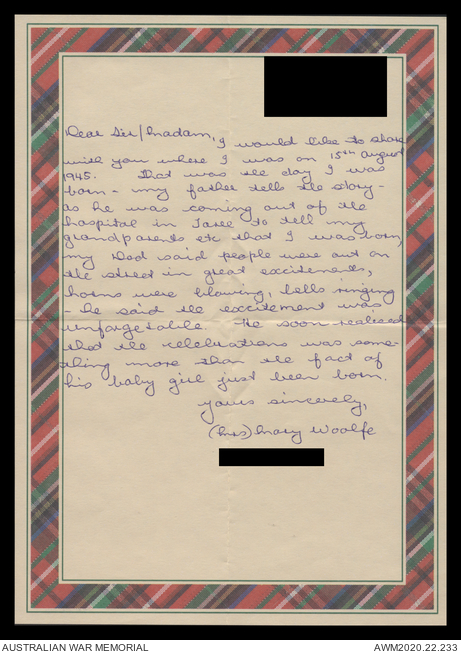 Dear Sir/Madam,
I would like to share
with you where I was on 15th August
1945. That was the day I was
born - my father tells the story -
as he was coming out of the
hospital in Taree to tell my
grandparents etc that I was born,
my Dad said people were out on
the street in great excitements,
horns were blowing, bells ringing
- he said the excitement was
unforgetable. He soon realised
that the celebrations was some-
thing more than the fact of
his baby girl just been born.
Yours sincerely,
(Mrs) Mary Woolfe
AUSTRALIAN WAR MEMORIAL
AWM2020.22.233